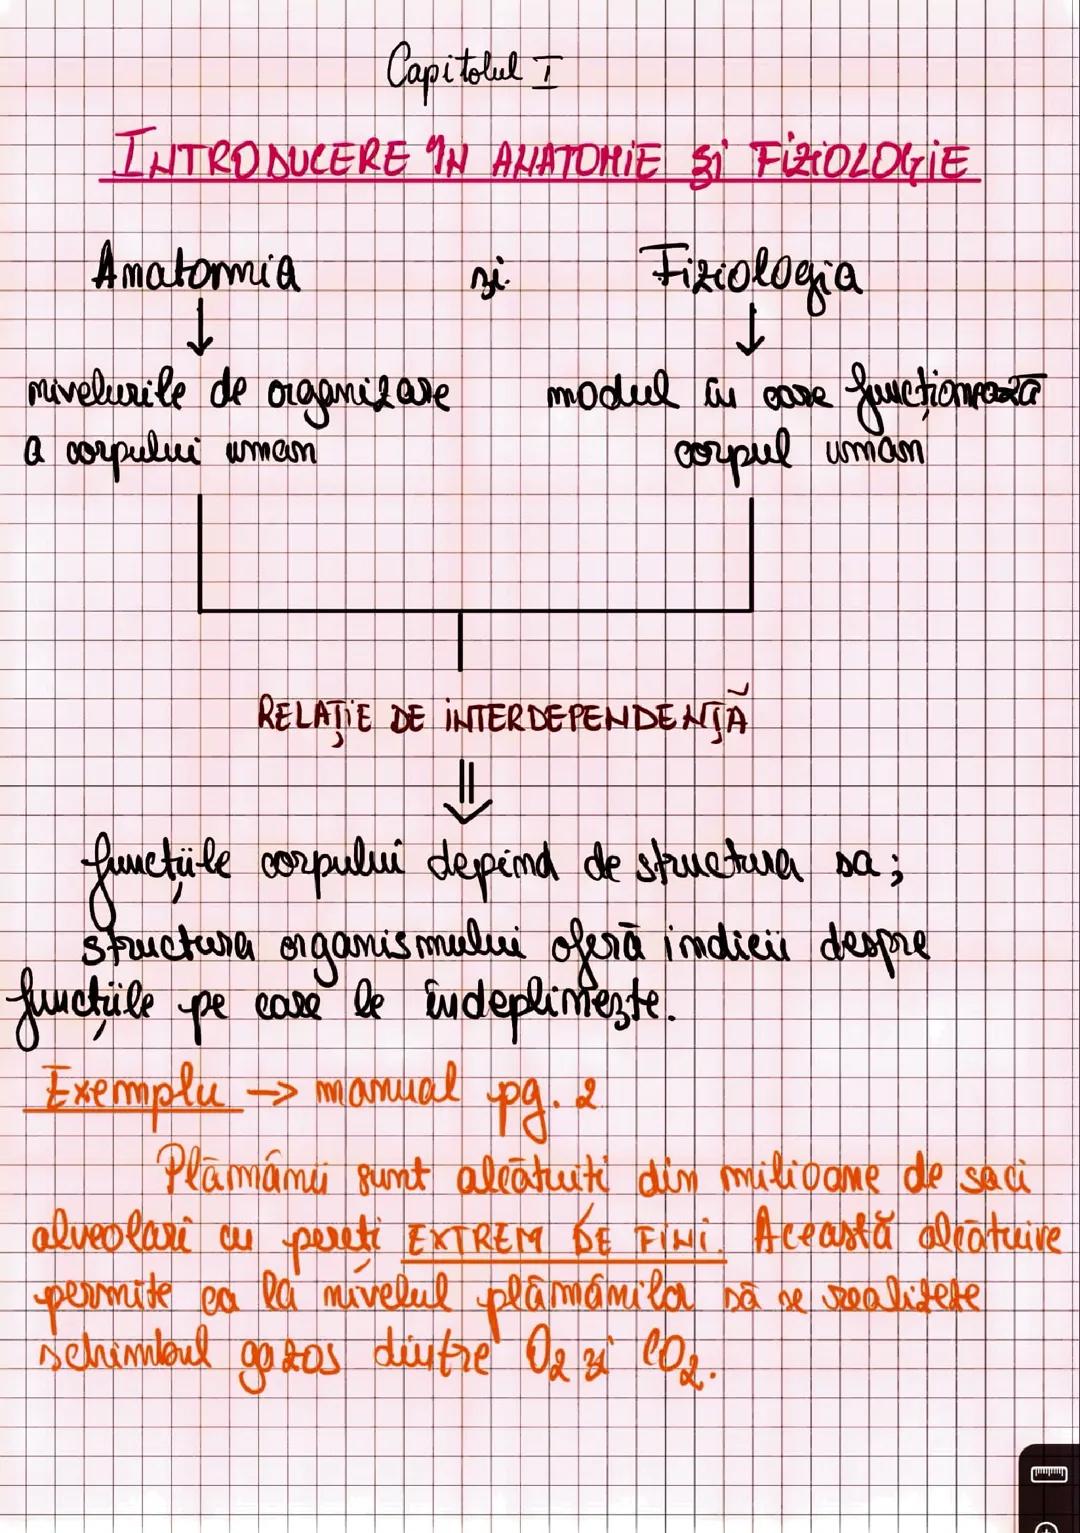 Capitolul I
INTRODUCERE ÎN ANATOMIE și FIZIOLOGIE
Anatomia și Fiziologia
↓ ↓
nivelurile de organizare modul în care funcționează
a corpului uman corpul uman
RELAȚIE DE INTERDEPENDENȚĂ
⇓
funcțiile corpului depind de structura sa;
structura organismului oferă indicii despre
funcțiile pe care le îndeplinește.
Exemplu → manual pg. 2
Plămânii sunt alcătuiți din milioane de saci
alveolari cu pereți EXTREM DE FINI. Această alcătuire
permite ca la nivelul plămânilor să se realizeze
schimbul gazos dintre O2 și CO2.